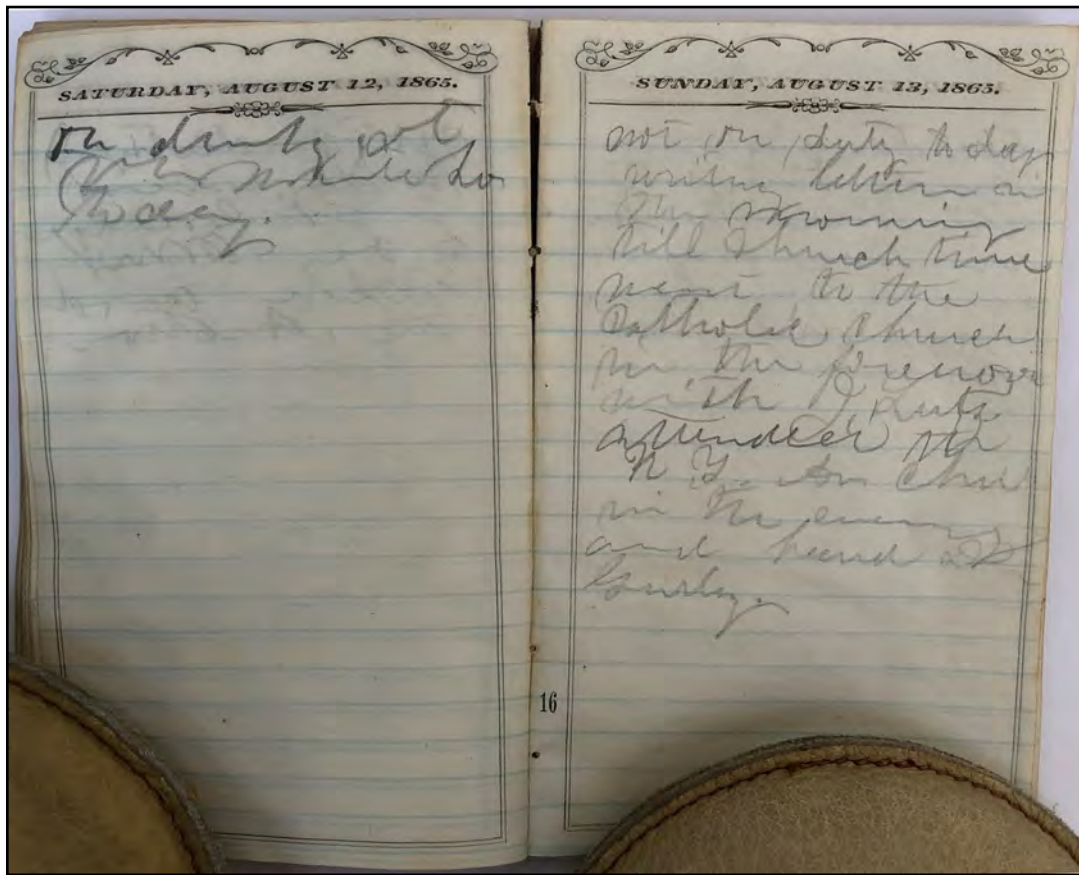 SATURDAY, AUGUST 12, 1865.
On duty at
White Ho
to day.
SUNDAY, AUGUST 13, 1865.
not on duty to day
writing letters in
the morning
till Church time
went to the
Catholic Church
in the forenoon
with
attended the
N. Y. Av Chu
in the evening
and heard Dr
Gurley.
16